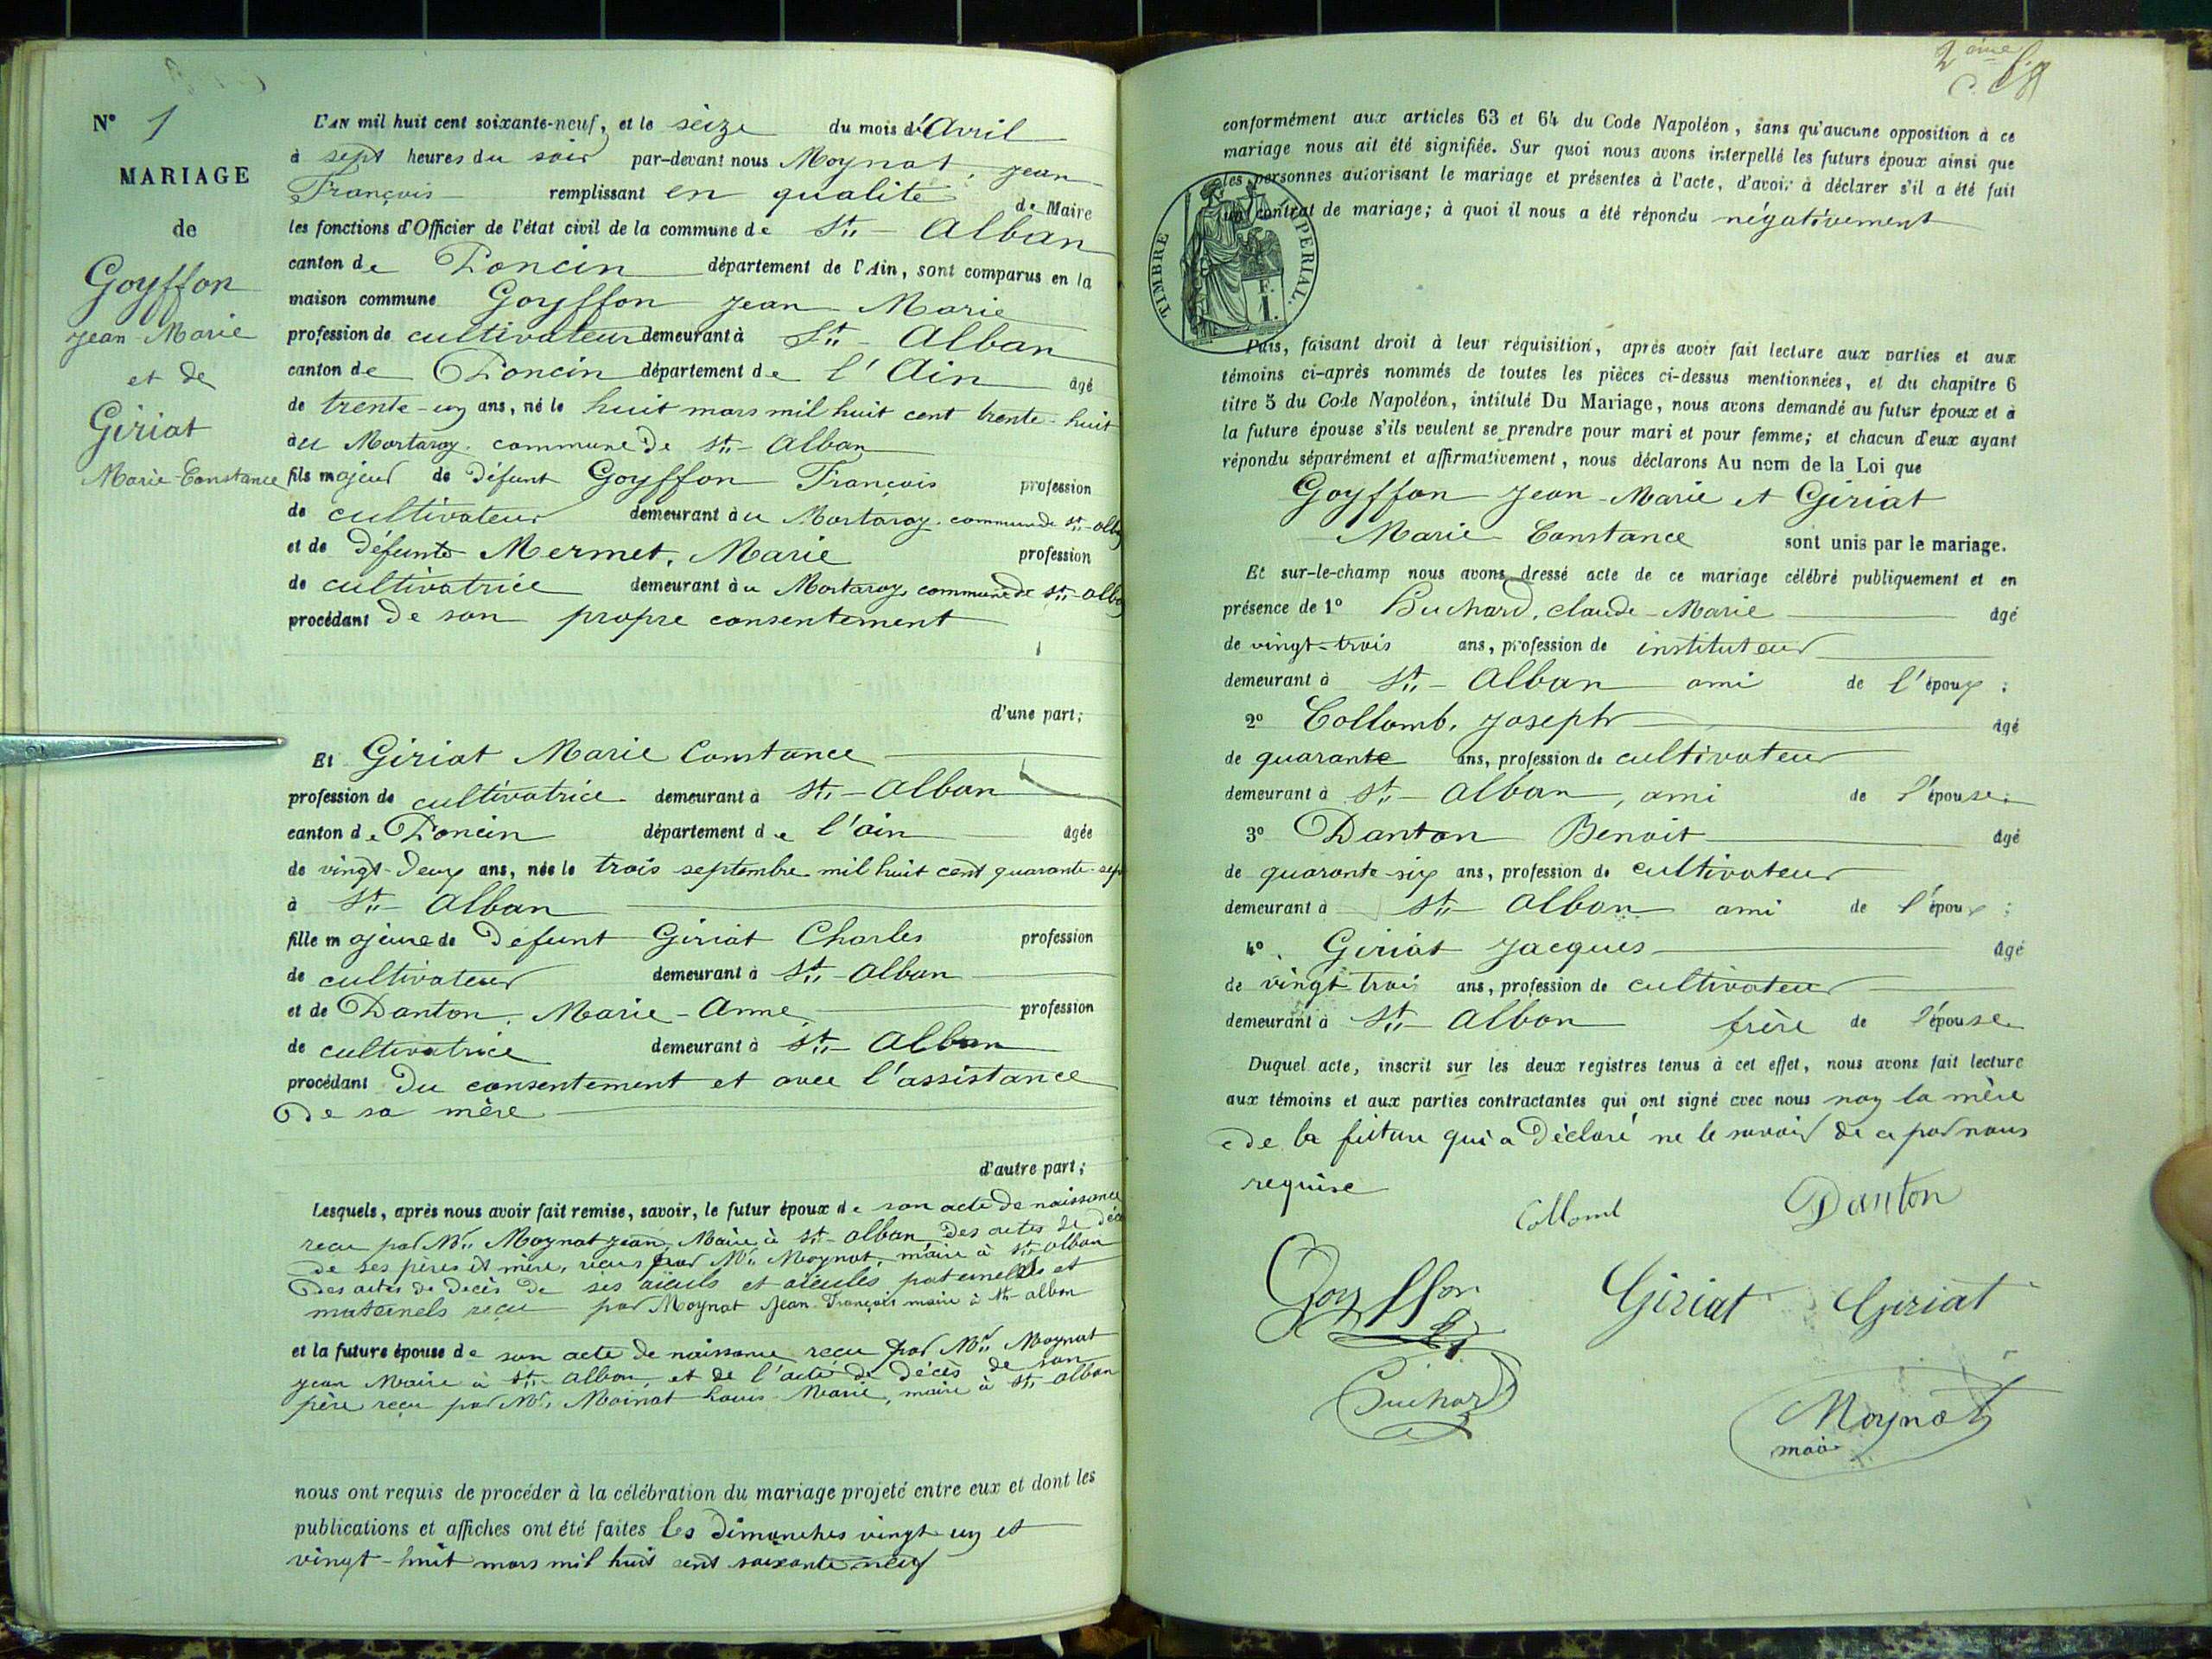 N° 1
MARIAGE
de
Goyffon
Jean-Marie
et de
Giriat
Marie-Constance
L'AN mil huit cent soixante-neuf, et le seize du mois d'Avril
à sept heures du soir par-devant nous Moynat, Jean
François remplissant en qualité de Maire
les fonctions d'Officier de l'état civil de la commune de St- Alban
canton de Poncin département de l'Ain, sont comparus en la
maison commune Goyffon Jean Marie
profession de cultivateur demeurant à St- Alban
canton de Poncin département de l'Ain âgé
de trente-un ans, né le huit mars mil huit cent trente-huit
au Mortaray commune de St- Alban
fils majeur de défunt Goyffon François profession
de cultivateur demeurant au Mortaray commune de St-Alb
et de défunte Mermet, Marie profession
de cultivatrice demeurant au Mortaray commune de St-Alb
procédant de son propre consentement
d'une part;
Et Giriat Marie Constance
profession de cultivatrice demeurant à St- Alban
canton de Poncin département de l'ain âgée
de vingt-deux ans, née le trois septembre mil huit cent quarante-sep
à St- Alban
fille majeure de défunt Giriat Charles profession
de cultivateur demeurant à St- Alban
et de Danton, Marie-Anne profession
de cultivatrice demeurant à St- Alban
procédant du consentement et avec l'assistance
de sa mère
d'autre part;
Lesquels, après nous avoir fait remise, savoir, le futur époux de son acte de naissance
reçu par Mr. Moynat Jean, Maire à St- Alban des actes de déc
de ses pères et mère, reçus par Mr. Moynat, maire à St- Alban
des actes de décès de ses aïeuls et aïeules paternels et
maternels reçu par Moynat Jean-François maire à St- alban
et la future épouse de son acte de naissance reçu par Mr. Moynat
Jean Maire à St- Alban, et de l'acte de décès de son
père reçu par Mr. Moinat Louis-Marie, maire à St- Alban
nous ont requis de procéder à la célébration du mariage projeté entre eux et dont les
publications et affiches ont été faites les dimanches vingt-un et
vingt-huit mars mil huit cent soixante-neuf
2ème
conformément aux articles 63 et 64 du Code Napoléon, sans qu'aucune opposition à ce
mariage nous ait été signifiée. Sur quoi nous avons interpellé les futurs époux ainsi que
les personnes autorisant le mariage et présentes à l'acte, d'avoir à déclarer s'il a été fait
un contrat de mariage; à quoi il nous a été répondu négativement
TIMBRE IMPERIAL.
1 F.
Puis, faisant droit à leur réquisition, après avoir fait lecture aux parties et aux
témoins ci-après nommés de toutes les pièces ci-dessus mentionnées, et du chapitre 6
titre 5 du Code Napoléon, intitulé Du Mariage, nous avons demandé au futur époux et à
la future épouse s'ils veulent se prendre pour mari et pour femme; et chacun d'eux ayant
répondu séparément et affirmativement, nous déclarons Au nom de la Loi que
Goyffon Jean-Marie et Giriat
Marie Constance sont unis par le mariage.
Et sur-le-champ nous avons dressé acte de ce mariage célébré publiquement et en
présence de 1° Buchard, claude-Marie âgé
de vingt-trois ans, profession de instituteur
demeurant à St- Alban ami de l'époux;
2° Collomb, Joseph âgé
de quarante ans, profession de cultivateur
demeurant à St- Alban, ami de l'épouse;
3° Danton Benoit âgé
de quarante-six ans, profession de cultivateur
demeurant à St- Alban ami de l'époux;
4° Giriat Jacques âgé
de vingt-trois ans, profession de cultivateur
demeurant à St- Alban frère de l'épouse
Duquel acte, inscrit sur les deux registres tenus à cet effet, nous avons fait lecture
aux témoins et aux parties contractantes qui ont signé avec nous non la mère
de la future qui a déclaré ne le savoir de ce par nous
requise
Collomb Danton
Goyffon Giriat Giriat
Buchard
Moynat
maire